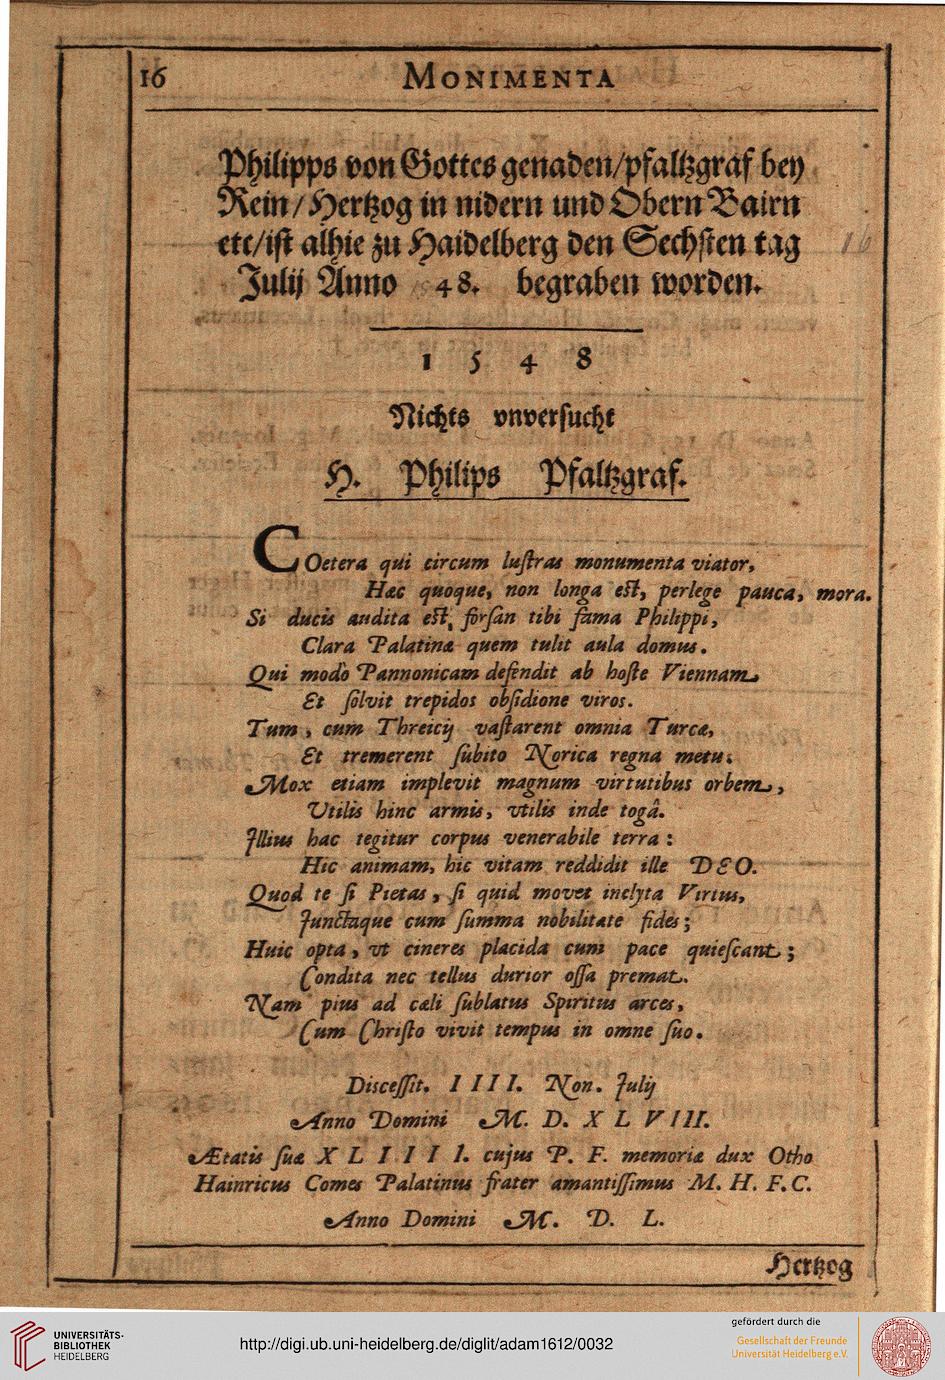 16 MONIMENTA
Philipps von Gottes genaden/pfaltzgraf bey
Rein/Hertzog in nidern und Obern Bairn
etc/ist alhie zu Haidelberg den Sechsten tag
Julij Anno 48. begraben worden.
16
1 5 4 8
Nichts vnversucht
H. Philips Pfaltzgraf.
COetera qui circum luſtras monumenta viator,
Hæc quoque, non longa eſt, perlege pauca, mora.
Si ducis audita eſt, forſan tibi fama Philippi,
Clara Palatinæ quem tulit aula domus.
Qui modò Pannonicam defendit ab hoſte Viennam
Et ſolvit trepidos obſidione viros.
Tum, cum Threicij vaſtarent omnia Turcæ,
Et tremerent ſubito Norica regna metu:
Mox etiam implevit magnum virtutibus orbem,
Utilis hinc armis, vtilis inde togâ.
Illius hac tegitur corpus venerabile terra:
Hic animam, hic vitam reddidit ille DEO.
Quod te ſi Pietas, ſi quid movet inclyta Virtus,
Junctaque cum ſumma nobilitate fides;
Huic opta, vt cineres placida cum pace quieſcant;
Condita nec tellus durior oſſa premat.
Nam pius ad cæli ſublatus Spiritus arces,
Cum Chriſto vivit tempus in omne ſuo.
Disceſſit. IIII. Non. Julij
Anno Domini M. D. XLVIII.
Ætatis ſuæ XLIIII. cujus P. F. memoriæ dux Otho
Hainricus Comes Palatinus frater amantiſſimus M. H. F. C.
Anno Domini M. D. L.
Hertzog
UNIVERSITÄTS-
BIBLIOTHEK
HEIDELBERG
http://digi.ub.uni-heidelberg.de/diglit/adam1612/0032
gefördert durch die
Gesellschaft der Freunde
Universität Heidelberg e.V.